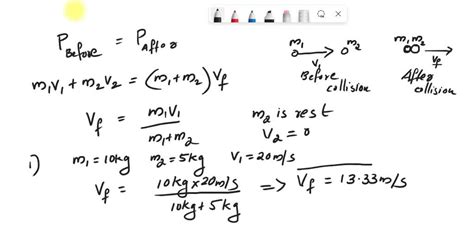 P Before = P After
m₁ m₂
V₁
Before collision
m₁ m₂
Vf
After collision
m₁V₁ + m₂V₂ = (m₁+m₂) Vf
Vf = m₁V₁ / m₁+m₂
m₂ is rest
V₂ = 0
i) m₁ = 10kg m₂ = 5kg V₁ = 20m/s
Vf = 10kg x 20m/s / 10kg + 5kg => Vf = 13.33m/s